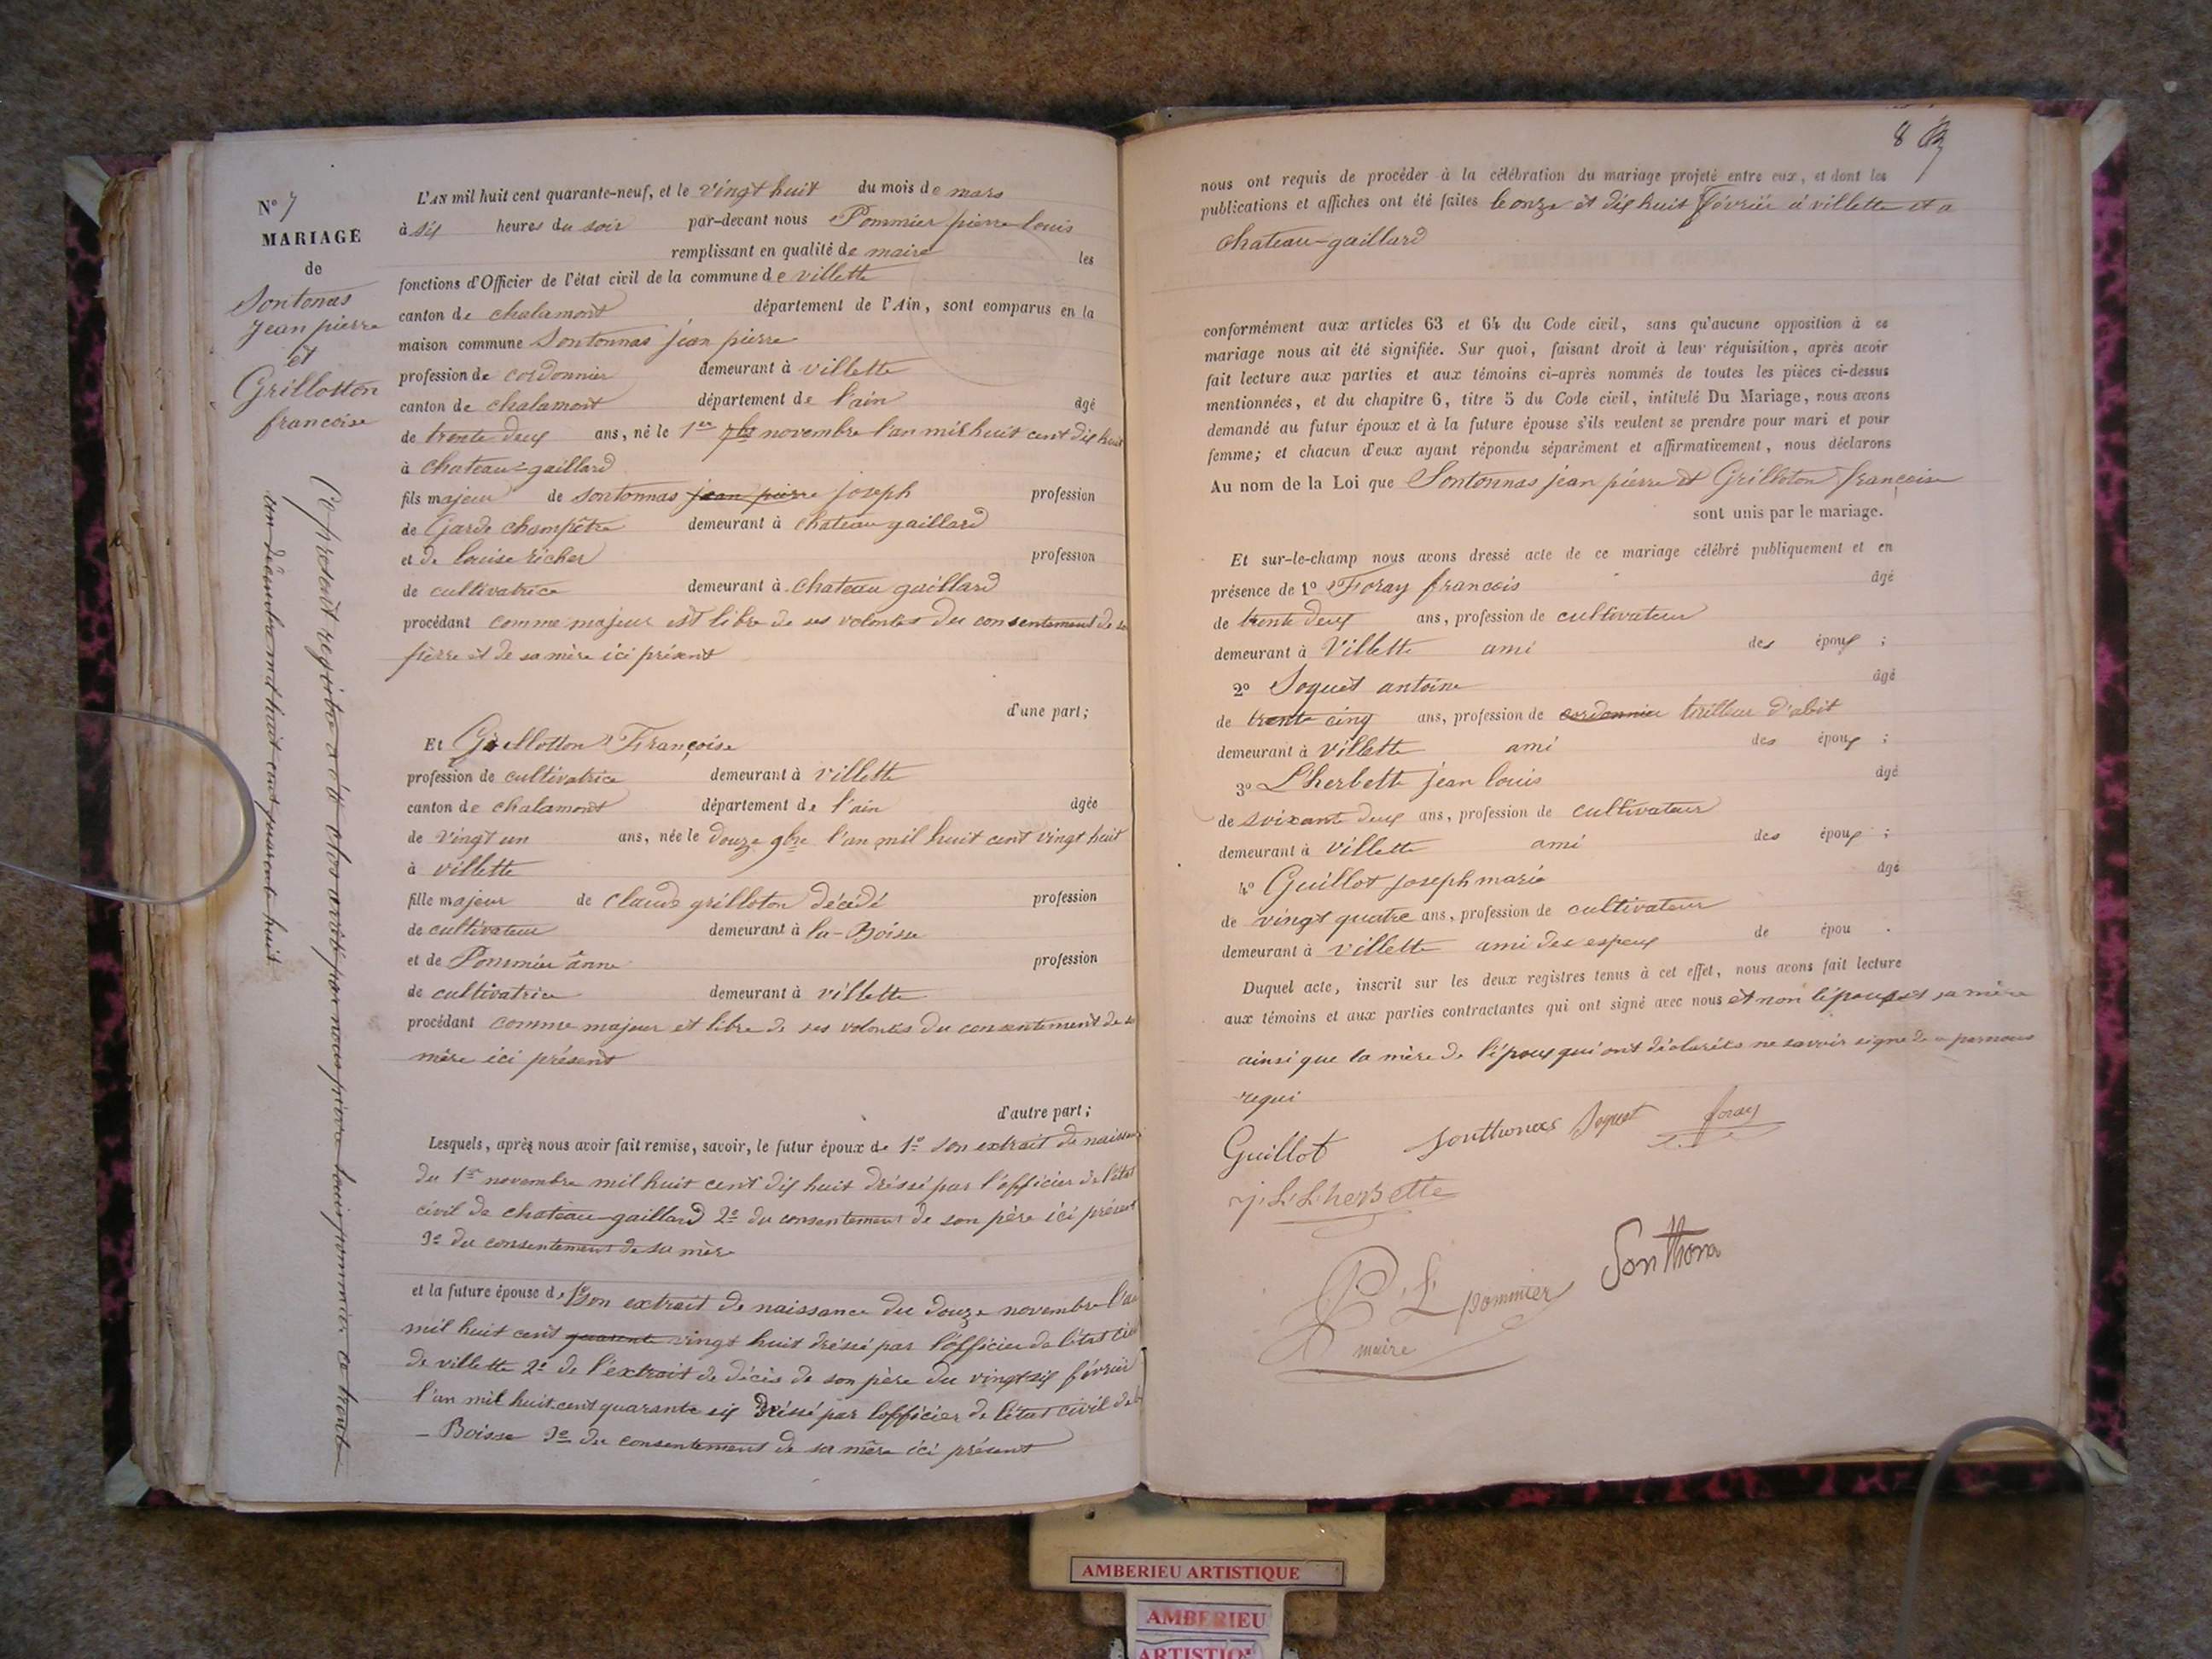 N° 7
MARIAGE
de
Sontonas
Jean pierre
et
Grillotton
francoise
Le present registre a été clos arrêté par nous pierre louis pommier ce trente
un décembre mil huit cent quarante huit
L'AN mil huit cent quarante-neuf, et le vingt huit du mois de mars
à six heures du soir par-devant nous Pommier pierre louis
remplissant en qualité de maire les
fonctions d'Officier de l'état civil de la commune de villette
canton de chalamont département de l'Ain, sont comparus en la
maison commune Sontonnas jean pierre
profession de cordonnier demeurant à villette
canton de chalamont département de l'ain âgé
de trente deux ans, né le 1er novembre l'an mil huit cent dix huit
à chateau-gaillard
fils majeur de sontonnas jean pierre joseph profession
de Garde champêtre demeurant à chateau gaillard
et de louise richer profession
de cultivatrice demeurant à chateau gaillard
procédant comme majeur est libre de ses volontés du consentement de
pierre et de sa mère ici présent
d'une part;
Et Grellotton Françoise
profession de cultivatrice demeurant à villette
canton de chalamont département de l'ain âgée
de vingt un ans, née le douze 9bre l'an mil huit cent vingt huit
à villette
fille majeur de claude grilloton décédé profession
de cultivateur demeurant à la-Boisse
et de Pommier ânne profession
de cultivatrice demeurant à villette
procédant comme majeur et libre de ses volontés du consentement de sa
mère ici présent
d'autre part;
Lesquels, après nous avoir fait remise, savoir, le futur époux de 1° son extrait de naissance
du 1er novembre mil huit cent dix huit dréssé par l'officier de l'état
civil de chateau-gaillard 2° du consentement de son père ici présent
3° du consentement de sa mère
et la future épouse de 1° son extrait de naissance du douze novembre l'an
mil huit cent quarente vingt huit dréssé par l'officier de l'état civil
de villette 2° de l'extrait de décès de son père du vingt six février
l'an mil huit cent quarante six dréssé par l'officier de l'état civil de la
- Boisse 3° du consentement de sa mère ici présent
8
nous ont requis de procéder à la célébration du mariage projeté entre eux, et dont les
publications et affiches ont été faites le onze et dix huit Février à villette et a
chateau-gaillard
conformément aux articles 63 et 64 du Code civil, sans qu'aucune opposition à ce
mariage nous ait été signifiée. Sur quoi, faisant droit à leur réquisition, après avoir
fait lecture aux parties et aux témoins ci-après nommés de toutes les pièces ci-dessus
mentionnées, et du chapitre 6, titre 5 du Code civil, intitulé Du Mariage, nous avons
demandé au futur époux et à la future épouse s'ils veulent se prendre pour mari et pour
femme; et chacun d'eux ayant répondu séparément et affirmativement, nous déclarons
Au nom de la Loi que Sontonnas jean pierre et Grilloton françoise
sont unis par le mariage.
Et sur-le-champ nous avons dressé acte de ce mariage célébré publiquement et en
présence de 1° Foray francois âgé
de trente deux ans, profession de cultivateur
demeurant à Villette ami des époux ;
2° Soquet antoine âgé
de trente cinq ans, profession de cordonnier tailleur d'abit
demeurant à villette ami des époux ;
3° L'herbette jean louis âgé
de soixante deux ans, profession de cultivateur
demeurant à villette ami des époux ;
4° Guillot joseph marie âgé
de vingt quatre ans, profession de cultivateur
demeurant à villette ami des espoux de épou .
Duquel acte, inscrit sur les deux registres tenus à cet effet, nous avons fait lecture
aux témoins et aux parties contractantes qui ont signé avec nous et non l'épouse et sa mère
ainsi que la mère de l'époux qui ont déclarées ne savoir signe de ce par nous
requi
Guillot sonthonas Soquet foray
j. L. Lherbette
Sonthona
P L pommier
maire
AMBERIEU ARTISTIQUE
AMBERIEU
ARTISTIQ